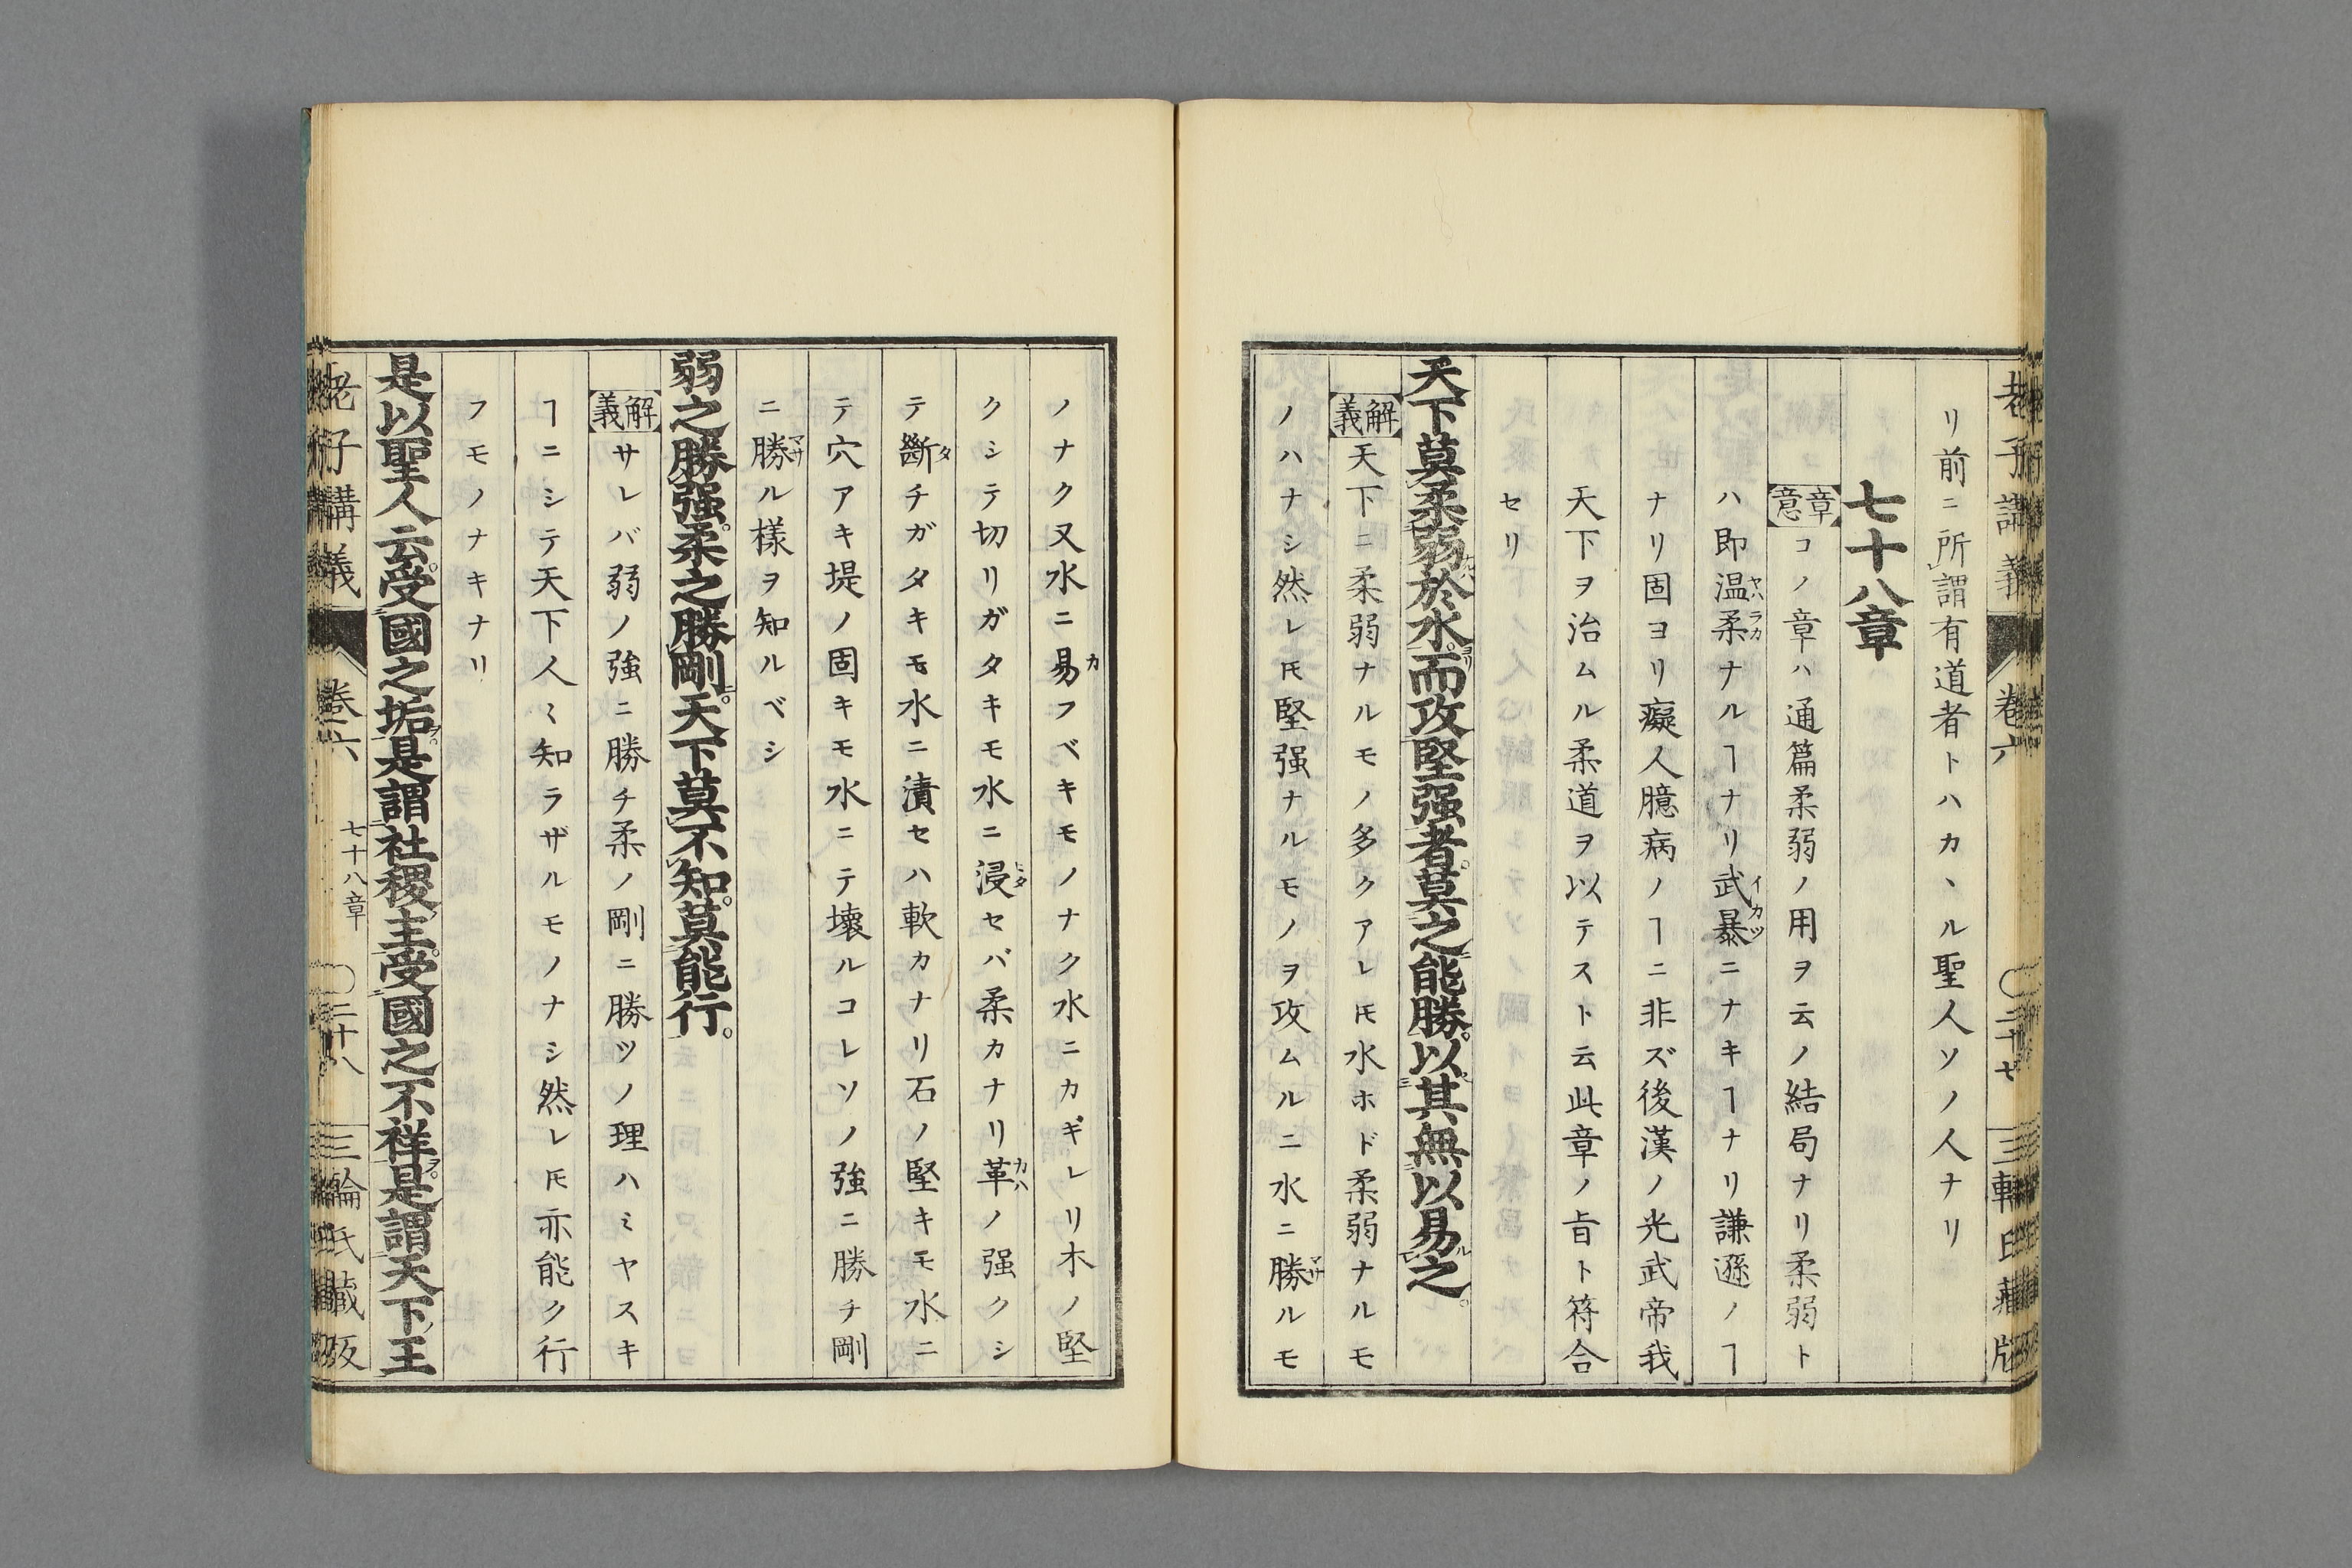 老子講義 卷六 〇二十七 三輪氏藏版
リ前ニ所謂有道者トハカヽル聖人ソノ人ナリ
七十八章
章意 コノ章ハ通篇柔弱ノ用ヲ云ノ結局ナリ柔弱ト
ハ即温柔ナルヿナリ武暴ニナキヿナリ謙遜ノヿ
ナリ固ヨリ癡人臆病ノヿニ非ズ後漢ノ光武帝我
天下ヲ治ムル柔道ヲ以テスト云此章ノ旨ト符合
セリ
天下莫柔弱於水而攻堅强者莫之能勝以其無以易之
解義 天下ニ柔弱ナルモノ多クアレ𪜈水ホド柔弱ナルモ
ノハナシ然レ𪜈堅强ナルモノヲ攻ムルニ水ニ勝ルモ
ノナク又水ニ易フベキモノナク水ニカギレリ木ノ堅
クシテ切リガタキモ水ニ浸セバ柔カナリ革ノ强クシ
テ斷チガタキモ水ニ漬セハ軟カナリ石ノ堅キモ水ニ
テ穴アキ堤ノ固キモ水ニテ壞ルコレソノ強ニ勝チ剛
ニ勝ル様ヲ知ルベシ
弱之勝强柔之勝剛天下莫不知莫能行
解義 サレバ弱ノ強ニ勝チ柔ノ剛ニ勝ツノ理ハミヤスキ
ヿニシテ天下人〻知ラザルモノナシ然レ𪜈亦能ク行
フモノナキナリ
是以聖人云受國之垢是謂社稷主受國之不祥是謂天下王
老子講義 卷六 七十八章 〇二十八 三輪氏藏版